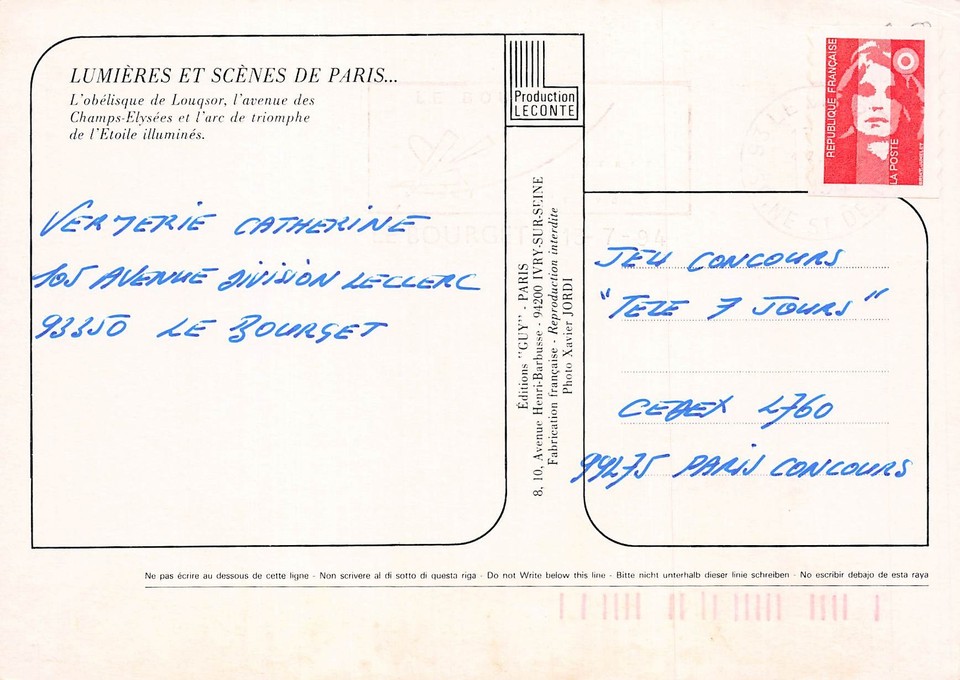 LUMIÈRES ET SCÈNES DE PARIS...
L'obélisque de Louqsor, l'avenue des
Champs-Elysées et l'arc de triomphe
de l'Etoile illuminés.
VERJERIE CATHERINE
105 AVENUE DIVISION LECLERC
93350 LE BOURGET
Production
LECONTE
Éditions "GUY" - PARIS
8, 10, Avenue Henri-Barbusse - 94200 IVRY-SUR-SEINE
Fabrication française - Reproduction interdite
Photo Xavier JORDI
REPUBLIQUE FRANÇAISE
LA POSTE
LE BOURGET 13-7-94
JEU CONCOURS
"TELE 7 JOURS"
CEDEX 2760
99275 PARIS CONCOURS
Ne pas écrire au dessous de cette ligne - Non scrivere al di sotto di questa riga - Do not Write below this line - Bitte nicht unterhalb dieser linie schreiben - No escribir debajo de esta raya